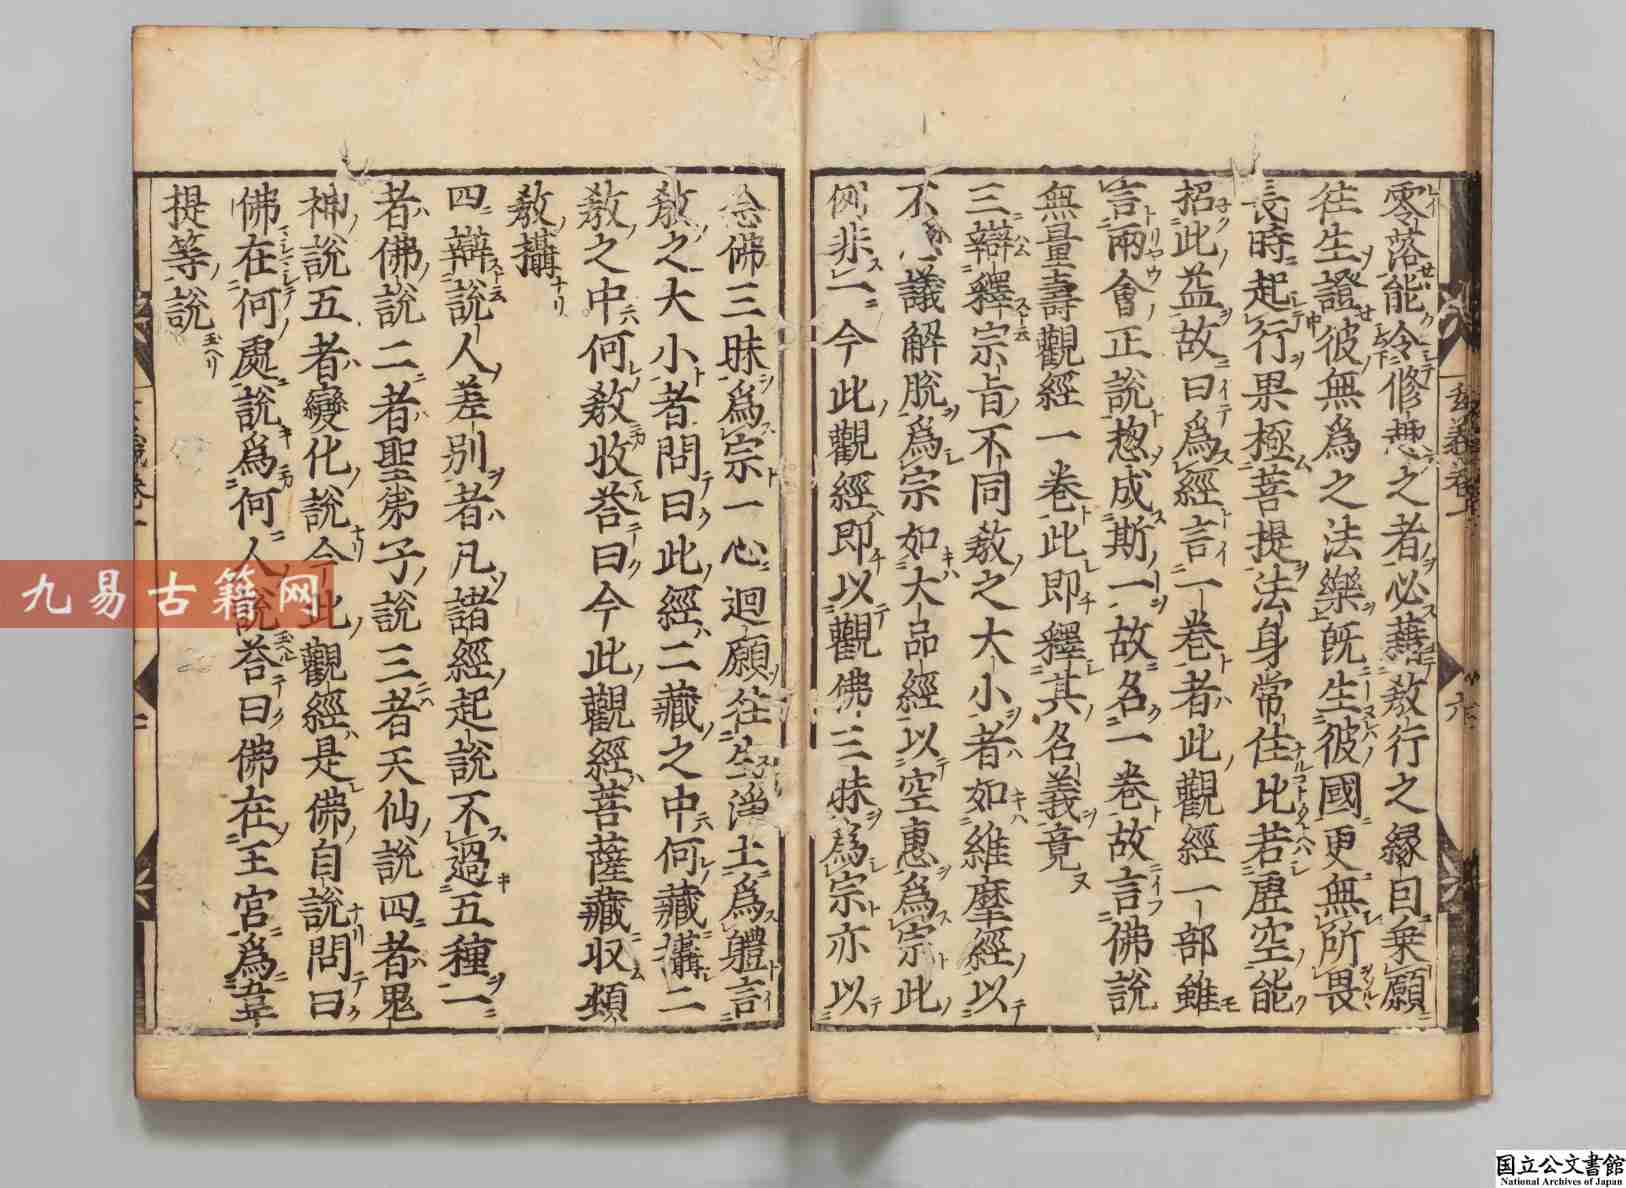 零落能令修趣之者必藉教行之縁因乗願
往生證彼無為之法樂既生彼國更無所畏
長時起行果極菩提法身常住比若虚空能
招此益故曰為經言一卷者此觀經一部雖
言兩會正說惣成斯一故名一巻故言佛說
無量壽觀經一巻此即釋其名義竟
三辯釋宗旨不同教之大小者如維摩經以
不議解脫為宗如大品經以空惠為宗此
例非一今此觀經即以觀佛三昧為宗亦以
念佛三昧為宗一心迴願往生淨土為體言
教之大小者問曰此經二藏之中何藏攝二
教之中何教收荅曰今此觀經菩薩藏収頓
教攝
四辯說人差別者凡諸經起說不過五種一
者佛說二者聖弟子說三者天仙說四者鬼
神說五者變化說今此觀經是佛自說問曰
佛在何處說為何人說荅曰佛在王宮為韋
提等說
九易古籍网
国立公文書館
National Archives of Japan